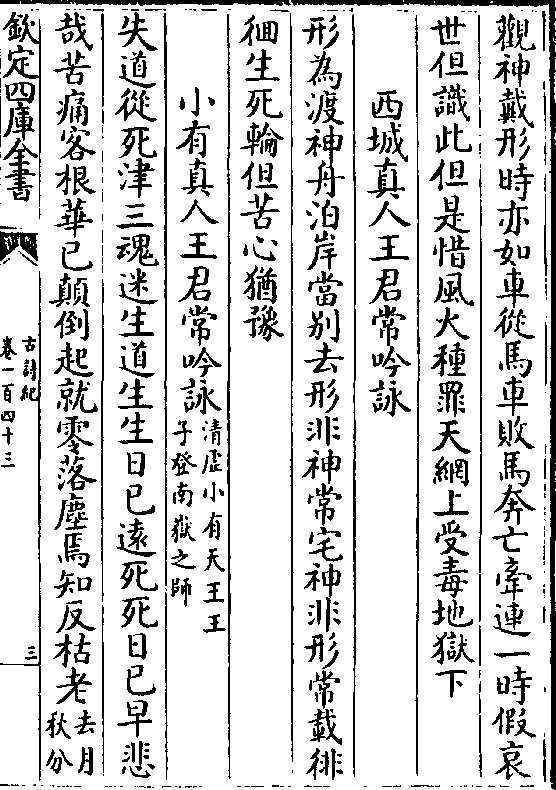 觀神戴形時亦如車從馬車敗馬奔亡牽連一時假哀
世但識此但是惜風火種罪天網上受毒地獄下
西城真人王君常吟詠
形為渡神舟泊岸當别去形非神常宅神非形常載徘
徊生死輪但苦心猶豫
小有真人王君常吟詠清虚小有天王王
子登南嶽之師
失道從死津三魂迷生道生生日已逺死死日已早悲
哉苦痛客根華已顛倒起就零落塵焉知反枯老去月
秋分
欽定四庫全書
古詩紀
卷一百四十三
三